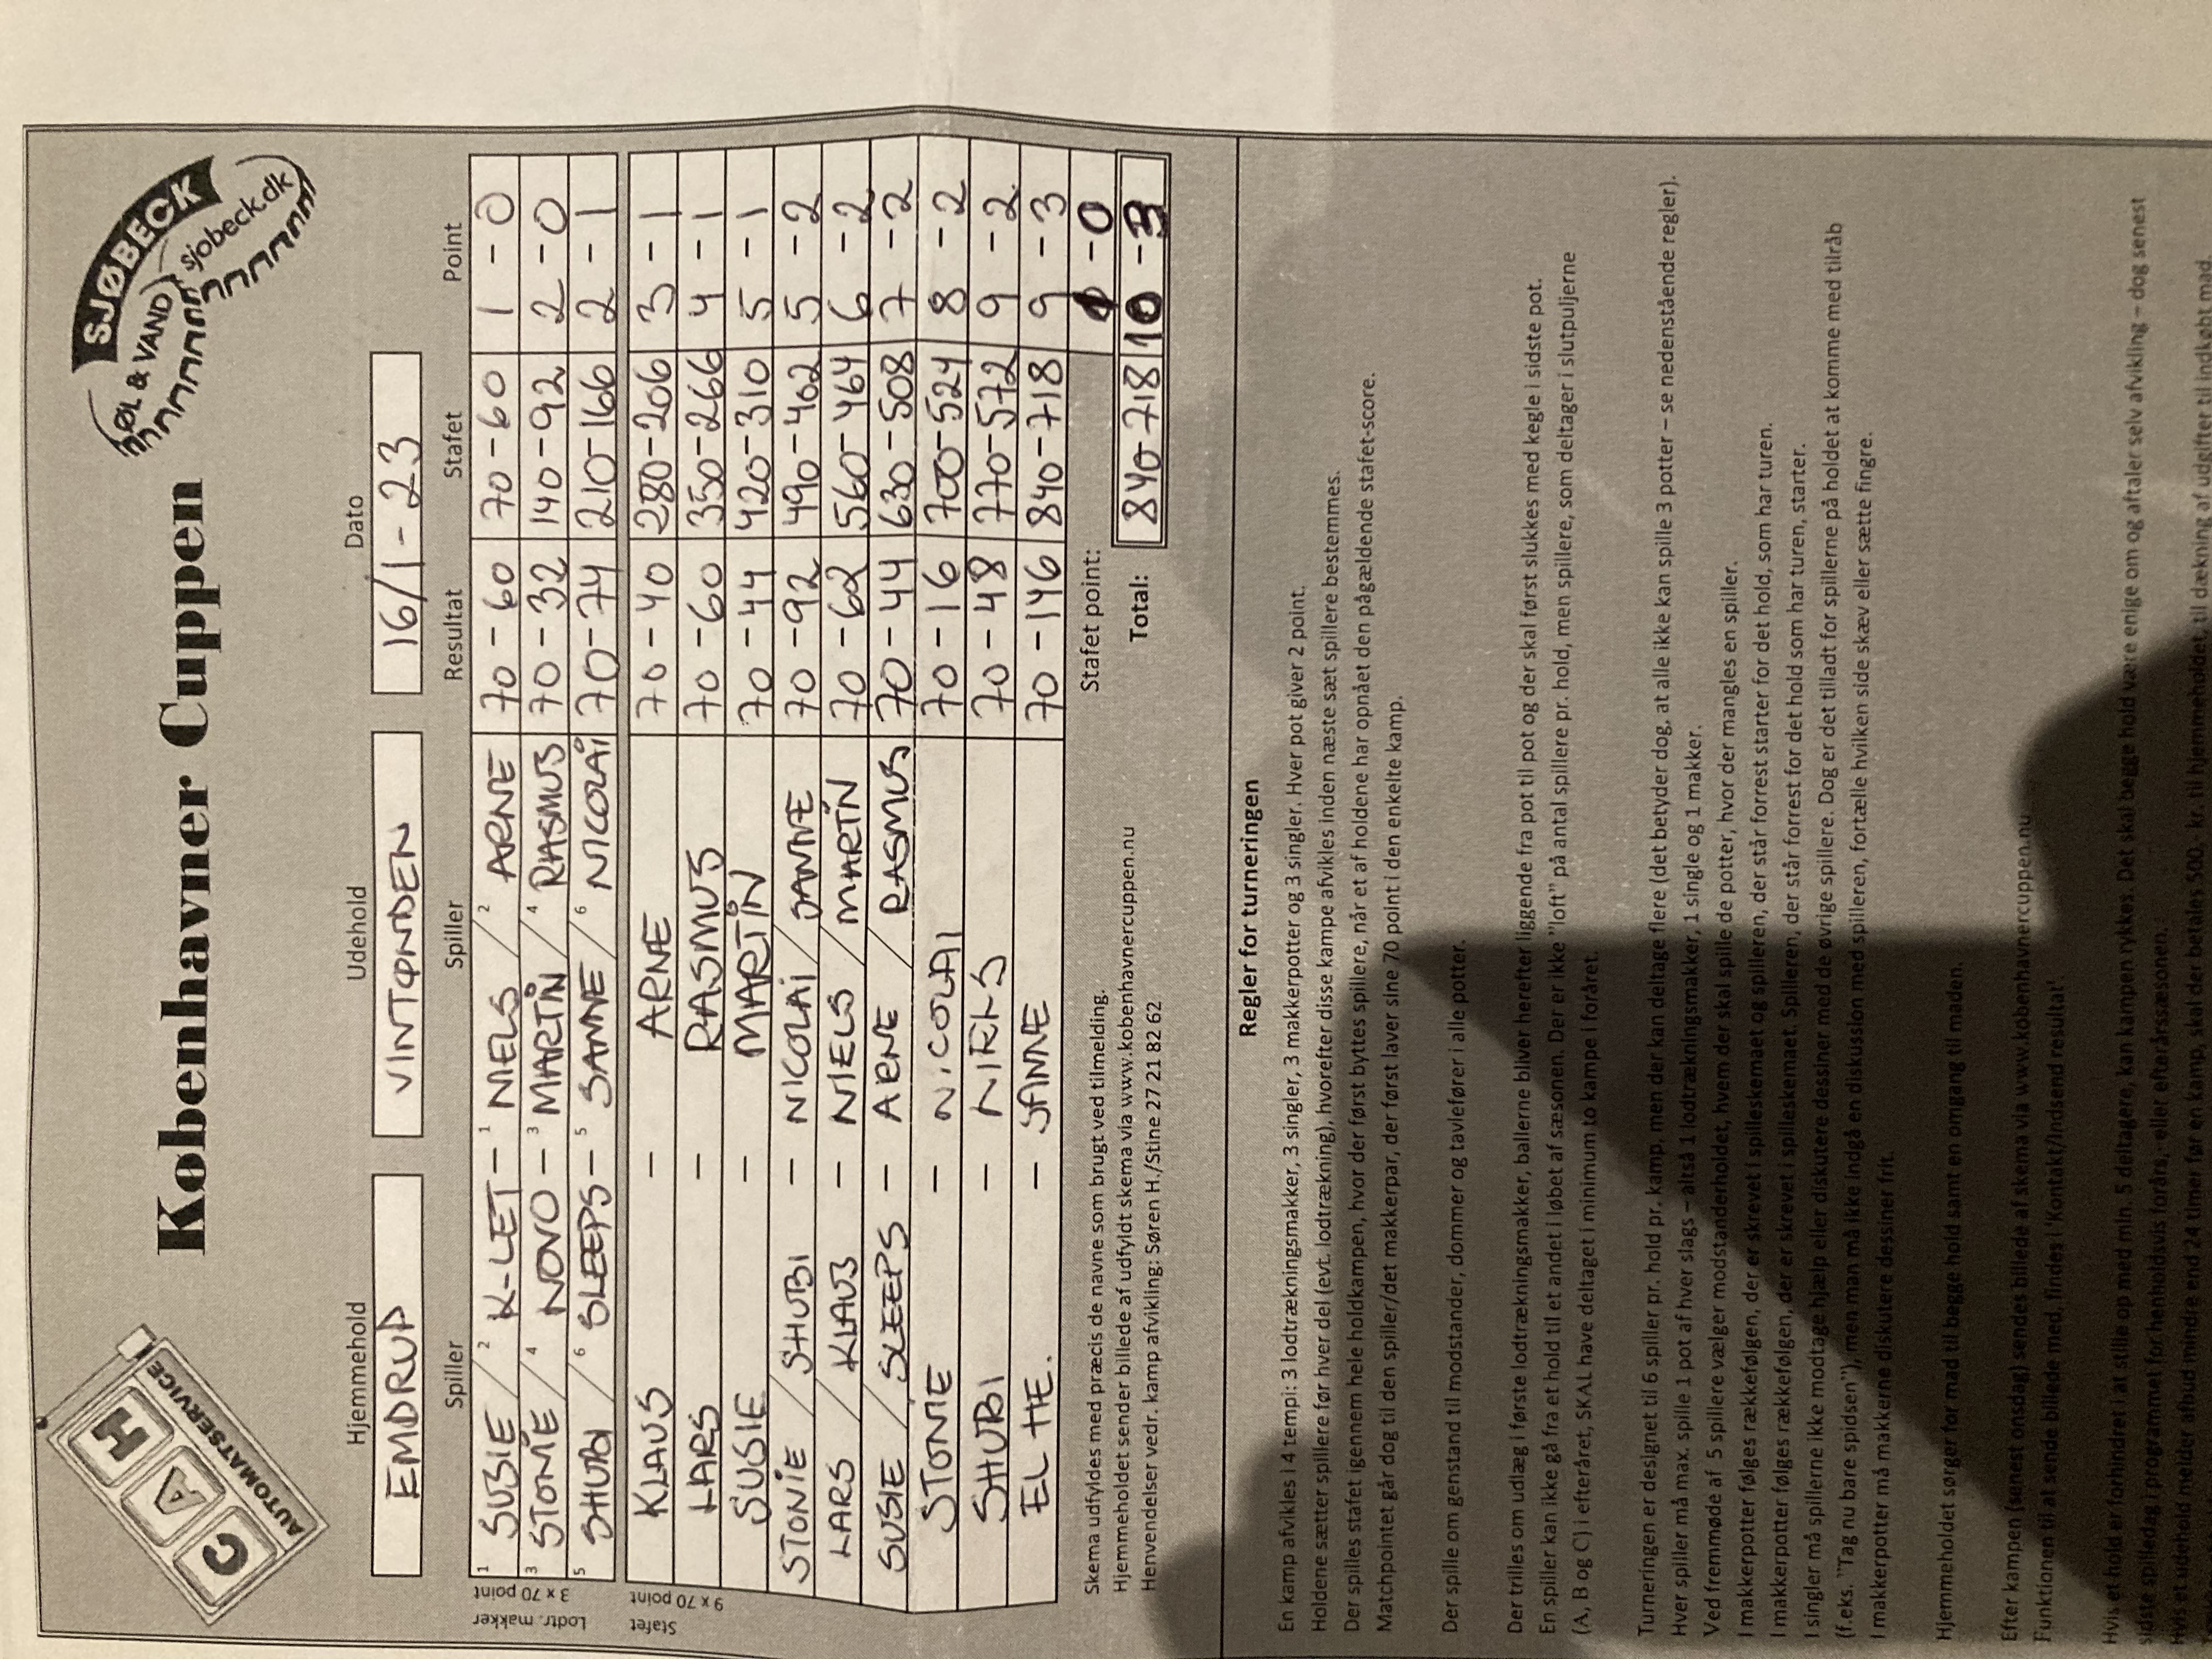 C A H
AUTOMATSERVICE
Københavner Cuppen
ØL & VAND
SJØBECK
sjobeck.dk
Hjemmehold Udehold Dato
EMDRUP VINTØNDEN 16/1-23
Spiller Spiller Resultat Stafet Point
Lodtr. makker 3 x 70 point
1 SUSIE / 2 K-LET - 1 NIELS / 2 ARNE 70-60 70-60 1-0
3 STONIE / 4 NOVO - 3 MARTIN / 4 RASMUS 70-32 140-92 2-0
5 SHUBI / 6 SLEEPS - 5 SANNE / 6 NICOLAI 70-74 210-166 2-1
Stafet 9 x 70 point
KLAUS - ARNE 70-40 280-206 3-1
LARS - RASMUS 70-60 350-266 4-1
SUSIE - MARTIN 70-44 420-310 5-1
STONIE / SHUBI - NICOLAI / SANNE 70-92 490-402 5-2
LARS / KLAUS - NIELS / MARTIN 70-62 560-464 6-2
SUSIE / SLEEPS - ARNE / RASMUS 70-44 630-508 7-2
STONIE - NICOLAI 70-16 700-524 8-2
SHUBI - NIELS 70-48 770-572 9-2
EL HE. - SANNE 70-146 840-718 9-3
Stafet point: -0
Total: 840-718 10-3
Skema udfyldes med præcis de navne som brugt ved tilmelding.
Hjemmeholdet sender billede af udfyldt skema via www.kobenhavnercuppen.nu
Henvendelser vedr. kamp afvikling: Søren H./Stine 27 21 82 62
Regler for turneringen
En kamp afvikles i 4 tempi: 3 lodtrækningsmakker, 3 singler, 3 makkerpotter og 3 singler. Hver pot giver 2 point.
Holdene sætter spillere før hver del (evt. lodtrækning), hvorefter disse kampe afvikles inden næste sæt spillere bestemmes.
Der spilles stafet igennem hele holdkampen, hvor der først byttes spillere, når et af holdene har opnået den pågældende stafet-score.
Matchpointet går dog til den spiller/det makkerpar, der først laver sine 70 point i den enkelte kamp.
Der spille om genstand til modstander, dommer og tavlefører i alle potter.
Der trilles om udlæg i første lodtrækningsmakker, ballerne bliver herefter liggende fra pot til pot og der skal først slukkes med kegle i sidste pot.
En spiller kan ikke gå fra et hold til et andet i løbet af sæsonen. Der er ikke "loft" på antal spillere pr. hold, men spillere, som deltager i slutpuljerne
(A, B og C) i efteråret, SKAL have deltaget i minimum to kampe i foråret.
Turneringen er designet til 6 spiller pr. hold pr. kamp, men der kan deltage flere (det betyder dog, at alle ikke kan spille 3 potter – se nedenstående regler).
Hver spiller må max. spille 1 pot af hver slags – altså 1 lodtrækningsmakker, 1 single og 1 makker.
Ved fremmøde af 5 spillere vælger modstanderholdet, hvem der skal spille de potter, hvor der mangles en spiller.
I makkerpotter følges rækkefølgen, der er skrevet i spilleskemaet og spilleren, der står forrest starter for det hold, som har turen.
I makkerpotter følges rækkefølgen, der er skrevet i spilleskemaet. Spilleren, der står forrest for det hold som har turen, starter.
I singler må spillerne ikke modtage hjælp eller diskutere dessiner med de øvrige spillere. Dog er det tilladt for spillerne på holdet at komme med tilråb
(f.eks. "Tag nu bare spidsen"), men man må ikke indgå en diskussion med spilleren, fortælle hvilken side skæv eller sætte fingre.
I makkerpotter må makkerne diskutere dessiner frit.
Hjemmeholdet sørger for mad til begge hold samt en omgang til maden.
Efter kampen (senest onsdag) sendes billede af skema via www.københavnercuppen.nu
Funktionen til at sende billede med, findes i 'Kontakt/Indsend resultat'
Hvis et hold er forhindret i at stille op med min. 5 deltagere, kan kampen rykkes. Det skal begge hold være enige om og aftaler selv afvikling – dog senest
sidste spilledag i programmet for henholdsvis forårs- eller efterårssæsonen.
Hvis et udehold melder afbud mindre end 24 timer før en kamp, skal der betales 500,- kr. til hjemmeholdet, til dækning af udgifter til indkøbt mad.